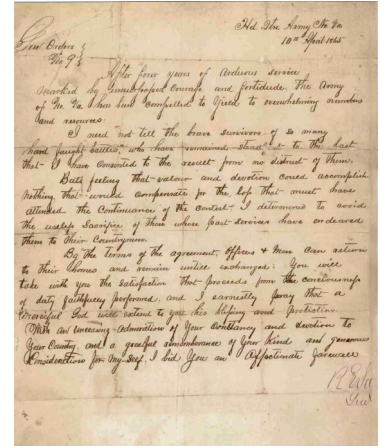 Hd. Qrs. Army No. Va
10th April 1865
Genl Orders
No. 9
After four years of arduous service
marked by unsurpassed Courage and fortitude, The Army
of No. Va has been compelled to Yield to overwhelming numbers
and resources.
I need not tell the brave survivors of so many
hard fought battles, who have remained steadfast to the last
that I have consented to the result from no distrust of them.
But feeling that valour and devotion could accomplish
Nothing that would compensate for the loss that must have
attended the Continuance of the contest, I determined to avoid
the useless Sacrifice of those whose past services have endeared
them to their Countrymen.
By the terms of the agreement, Officers & Men can return
to their homes and remain until exchanged. You will
take with you the Satisfaction that proceeds from the conciousness
of duty faithfully performed, and I earnestly pray that a
Merciful God will extend to you his blessing and protection.
With an unceasing admiration of Your Constancy and devotion to
Your Country, and a grateful remembrance of Your Kind and generous
Consideration for My Self, I bid You an Affectionate farewell
R E Lee
Genl